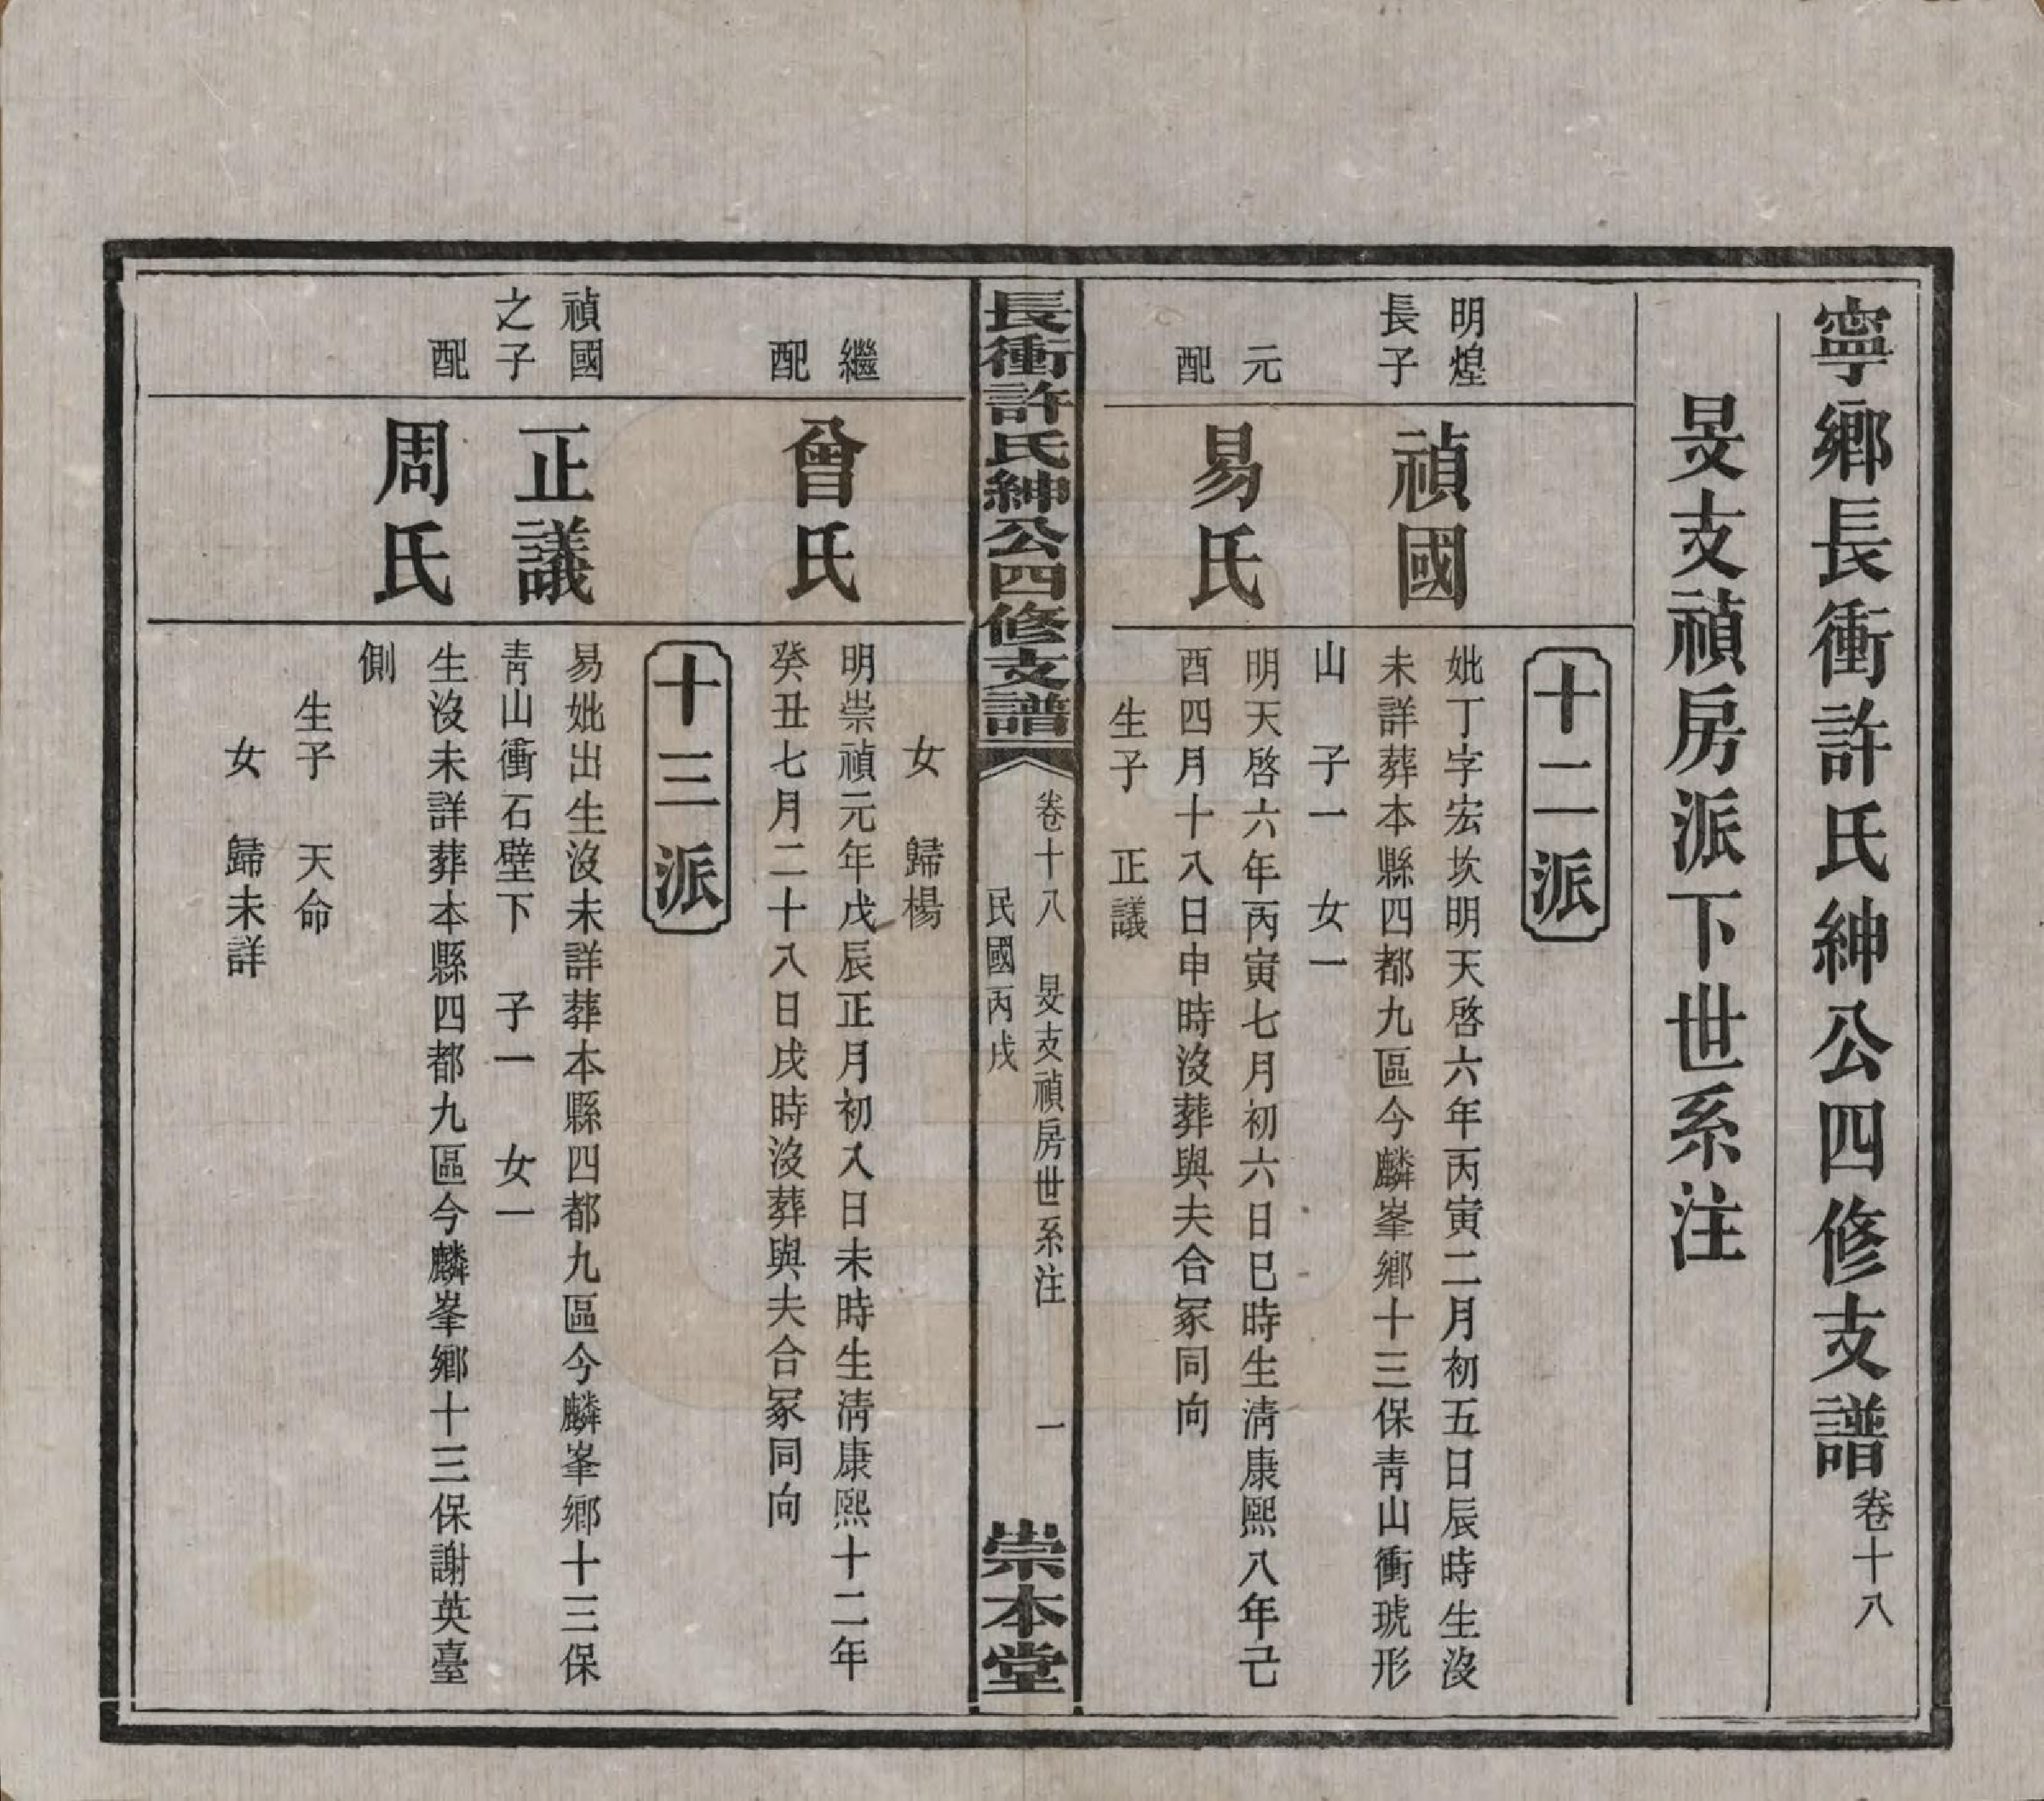 寧鄉長衝許氏紳公四修支譜卷十八
旻支禎房派下世系注
十二派
明煌
長子
禎國
妣丁字宏坎明天啓六年丙寅二月初五日辰時生沒
未詳葬本縣四都九區今麟峯鄉十三保靑山衝琥形
山 子一 女一
元
配
易氏
明天啓六年丙寅七月初六日巳時生淸康熙八年己
酉四月十八日申時沒葬與夫合冢同向
生子 正議
長衝許氏紳公四修支譜
卷十八 旻支禎房世系注 一
民國丙戌
崇本堂
女 歸楊
繼
配
曾氏
明崇禎元年戊辰正月初入日未時生淸康熙十二年
癸丑七月二十八日戌時沒葬與夫合冢同向
十三派
禎國
之子
正議
易妣出生沒未詳葬本縣四都九區今麟峯鄉十三保
靑山衝石壁下 子一 女一
配
周氏
生沒未詳葬本縣四都九區今麟峯鄉十三保謝英臺
側
生子 天命
女 歸未詳